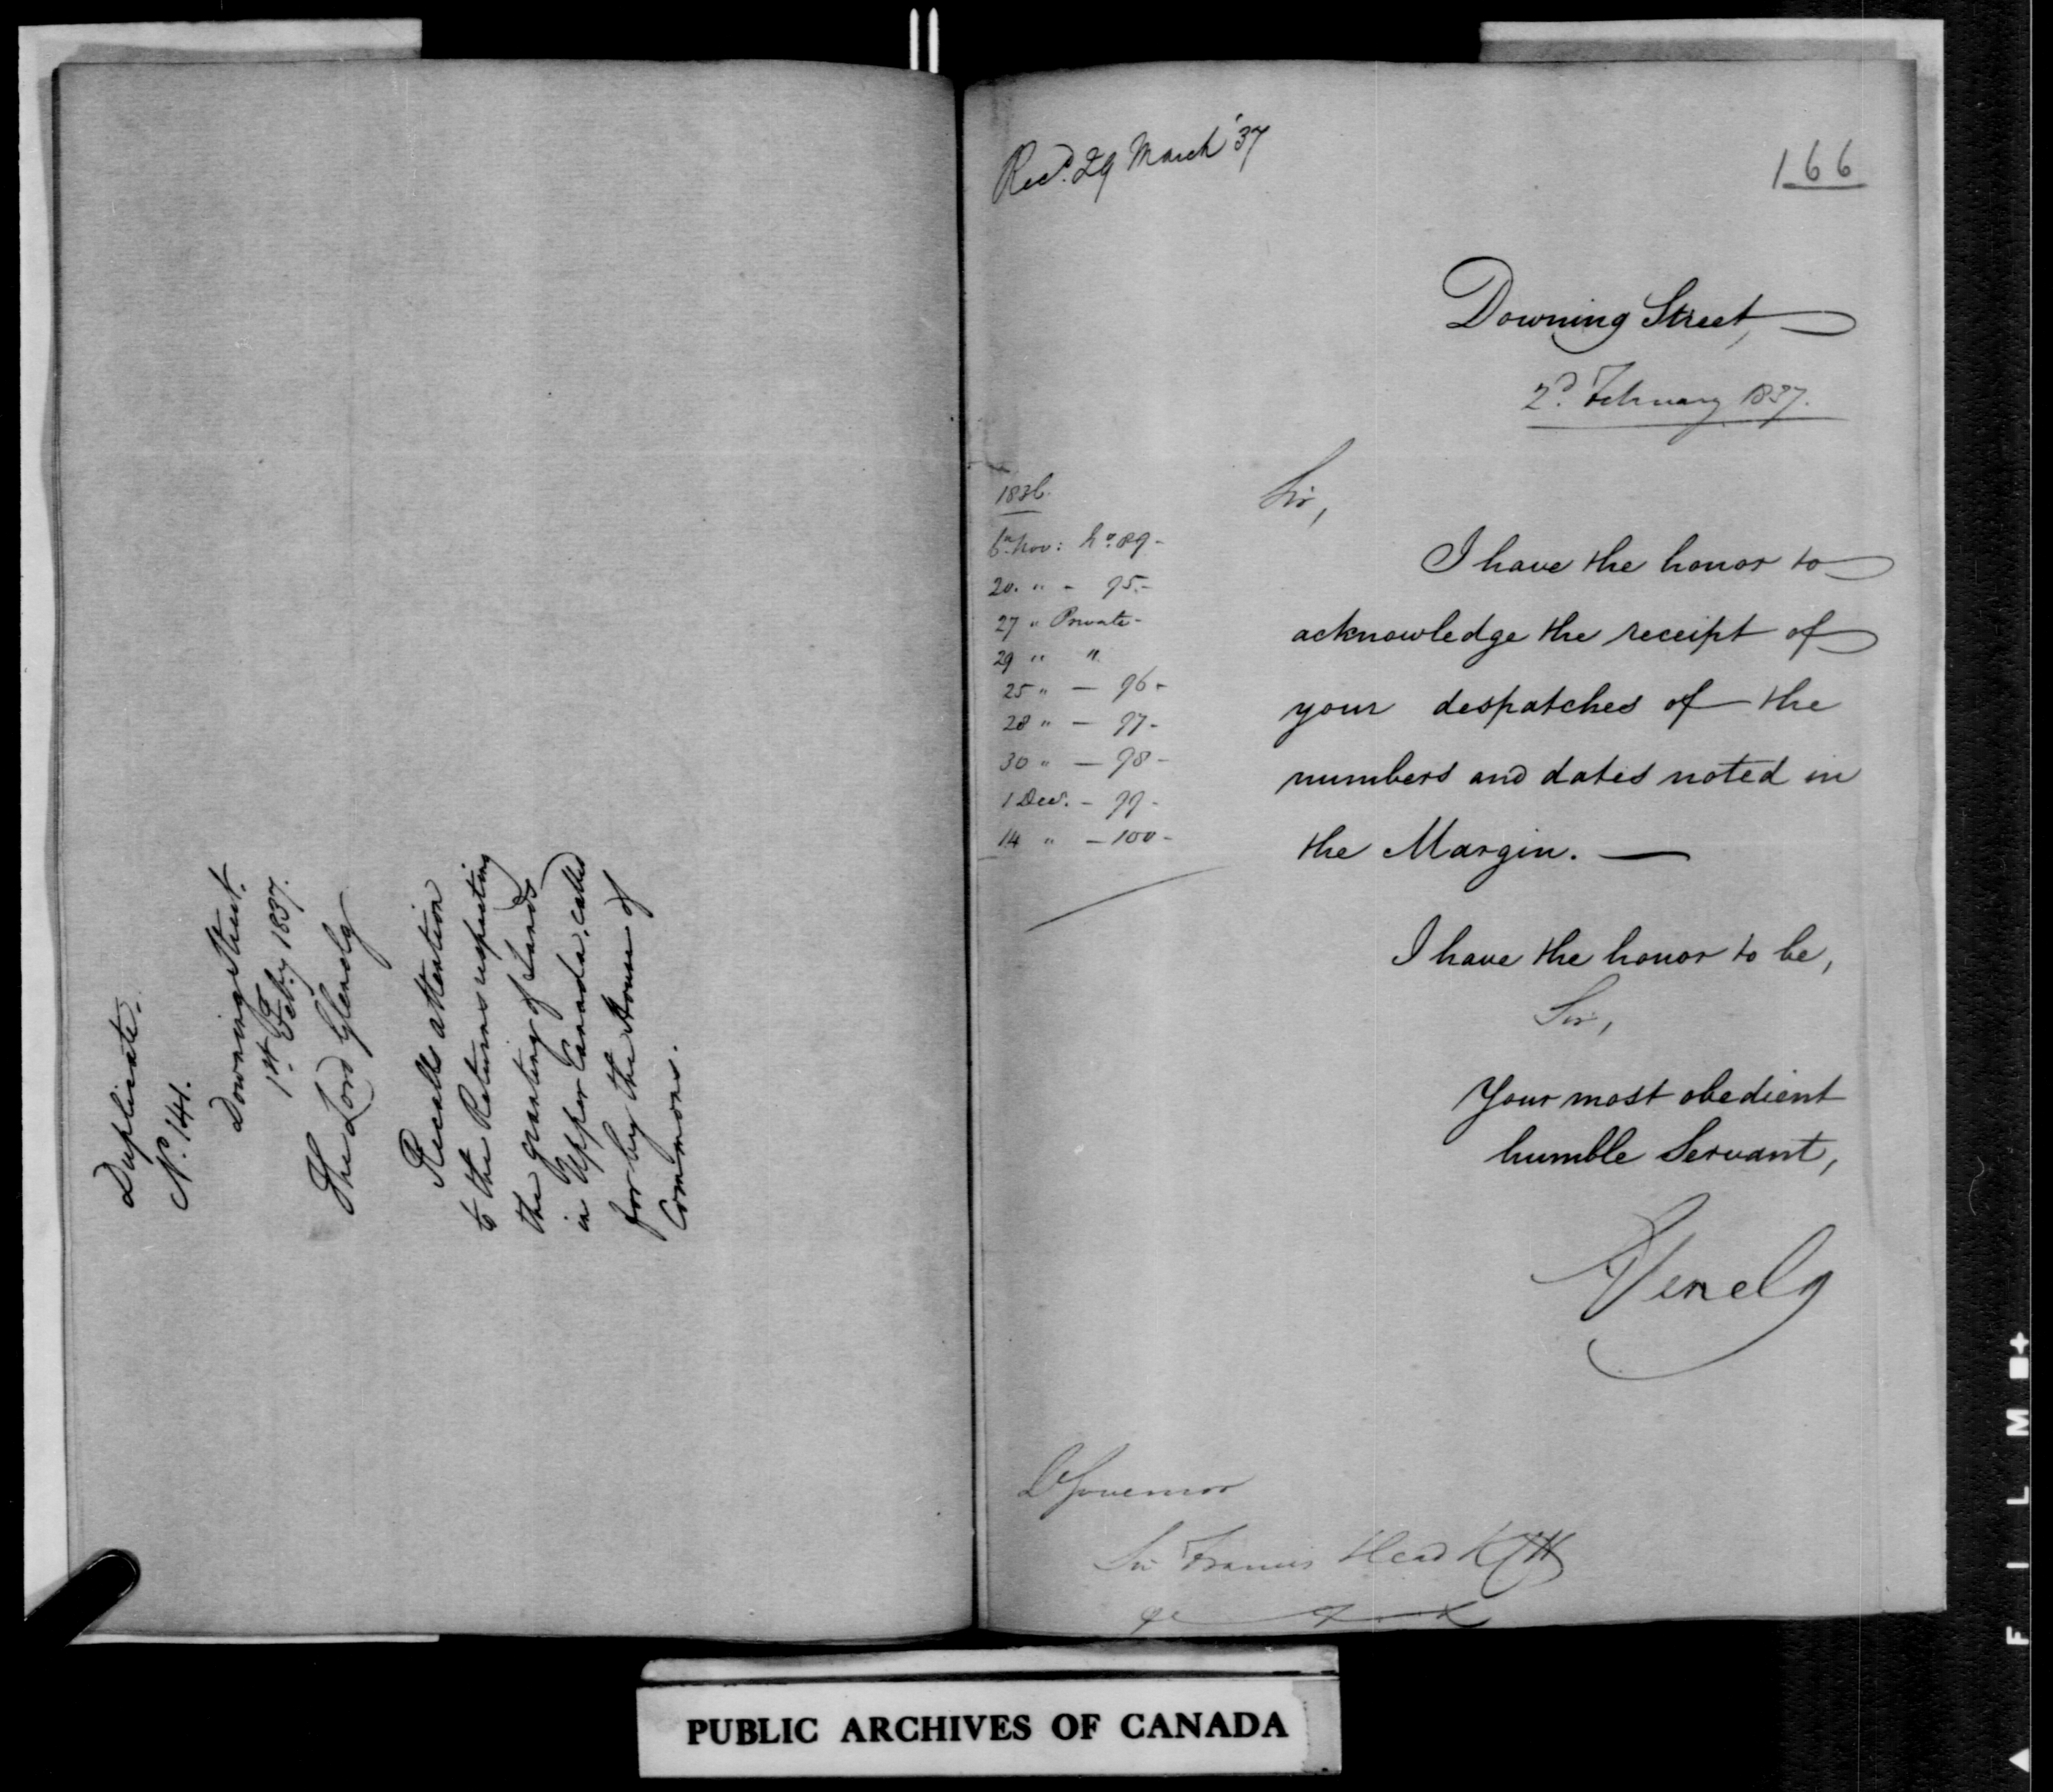 Duplicate.
No. 141.
Downing Street.
1st Feby 1837.
The Lord Glenelg
Recalls attention
to the Returns respecting
the granting of Lands
in Upper Canada, called
for by the House of
Commons.
Recd. 29 March '37
166
Downing Street,
2d. February 1837.
Sir,
1836.
Nov: No. 89-
20. " - 95.-
27 " Private-
29 " "
25 " - 96-
28 " - 97-
30 " - 98-
1 Decr. - 99-
14 " - 100-
I have the honor to
acknowledge the receipt of
your despatches of the
numbers and dates noted in
the Margin. -
I have the honor to be,
Sir,
Your most obedient
humble Servant,
Glenelg
Lt Governor
Sir Francis Head KCH
PUBLIC ARCHIVES OF CANADA
FILM